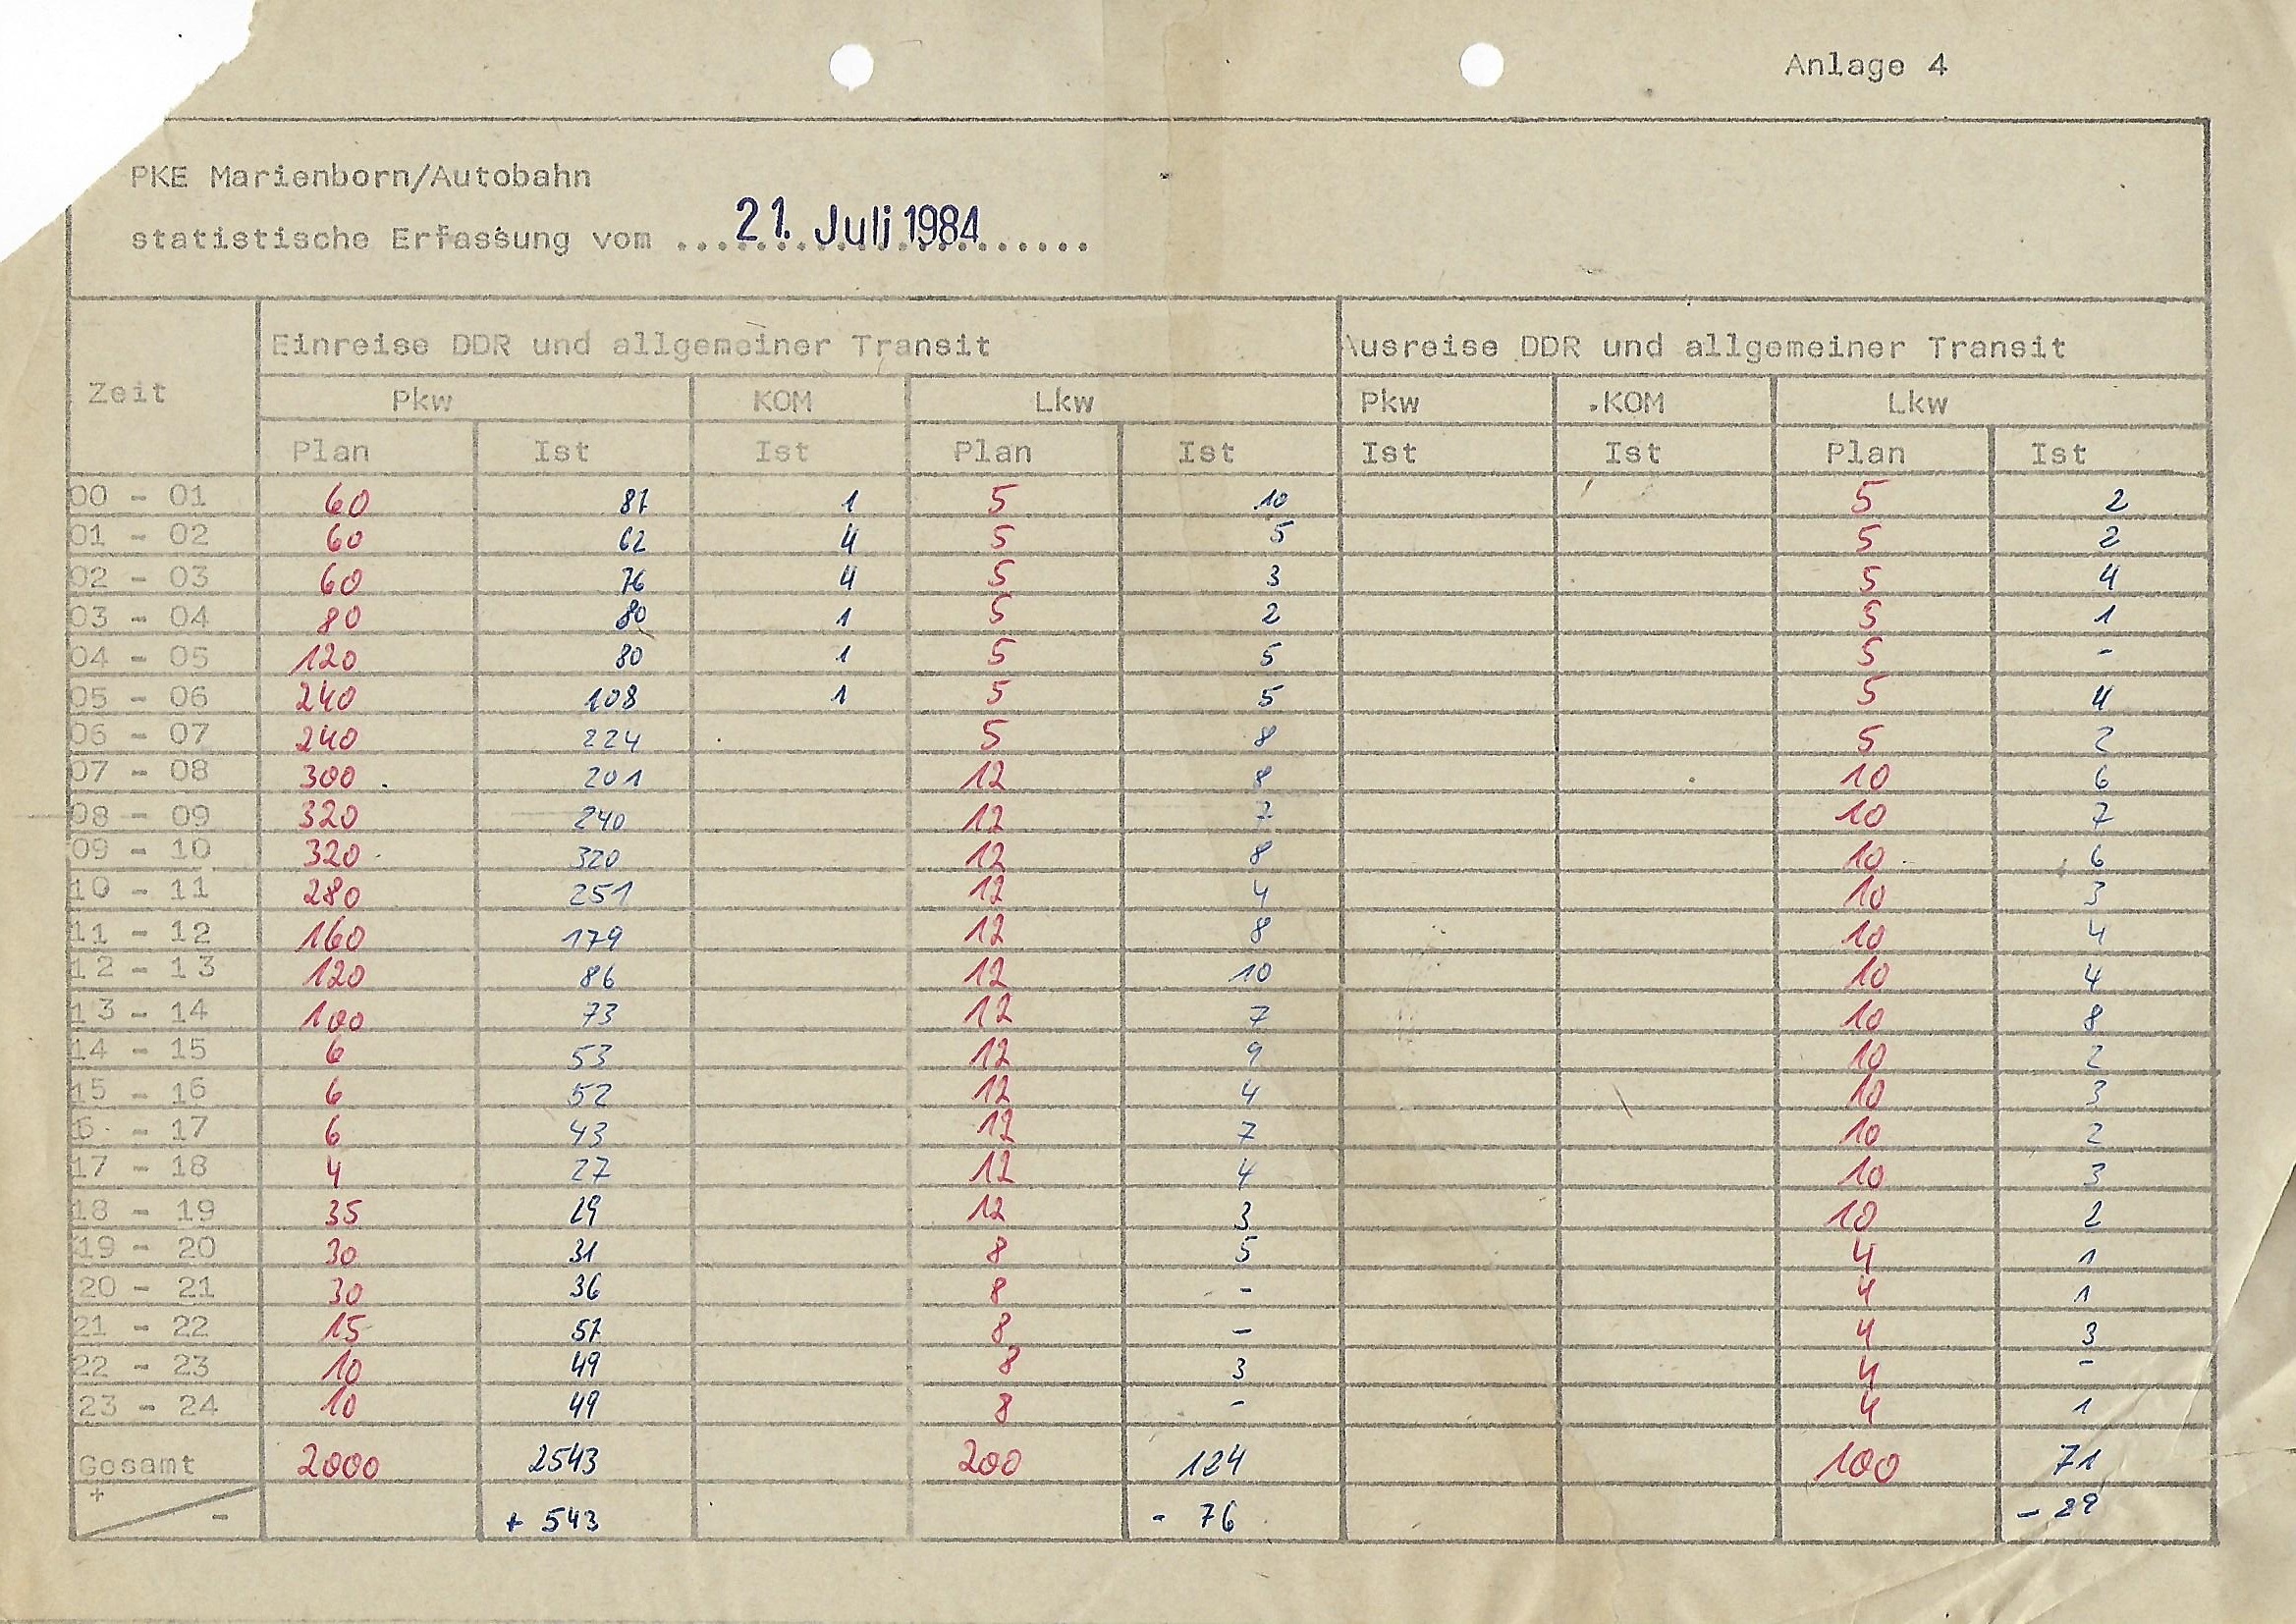 Anlage 4
PKE Marienborn/Autobahn
statistische Erfassung vom ... 21. Juli 1984 ...
Zeit Einreise DDR und allgemeiner Transit Ausreise DDR und allgemeiner Transit
Pkw KOM Lkw Pkw KOM Lkw
Plan Ist Ist Plan Ist Ist Ist Plan Ist
00 - 01 60 87 1 5 10 5 2
01 - 02 60 62 4 5 5 5 2
02 - 03 60 76 4 5 3 5 4
03 - 04 80 80 1 5 2 5 1
04 - 05 120 80 1 5 5 5 -
05 - 06 240 108 1 5 5 5 4
06 - 07 240 224 5 8 5 2
07 - 08 300 201 12 8 10 6
08 - 09 320 240 12 7 10 7
09 - 10 320 320 12 8 10 6
10 - 11 280 251 12 4 10 3
11 - 12 160 179 12 8 10 4
12 - 13 120 86 12 10 10 4
13 - 14 100 73 12 7 10 8
14 - 15 6 53 12 9 10 2
15 - 16 6 52 12 4 10 3
6 - 17 6 43 12 7 10 2
17 - 18 4 27 12 4 10 3
18 - 19 35 29 12 3 10 2
19 - 20 30 31 8 5 4 1
20 - 21 30 36 8 - 4 1
21 - 22 15 57 8 - 4 3
22 - 23 10 49 8 3 4 -
23 - 24 10 49 8 - 4 1
Gesamt 2000 2543 200 124 100 71
+ - + 543 - 76 - 29